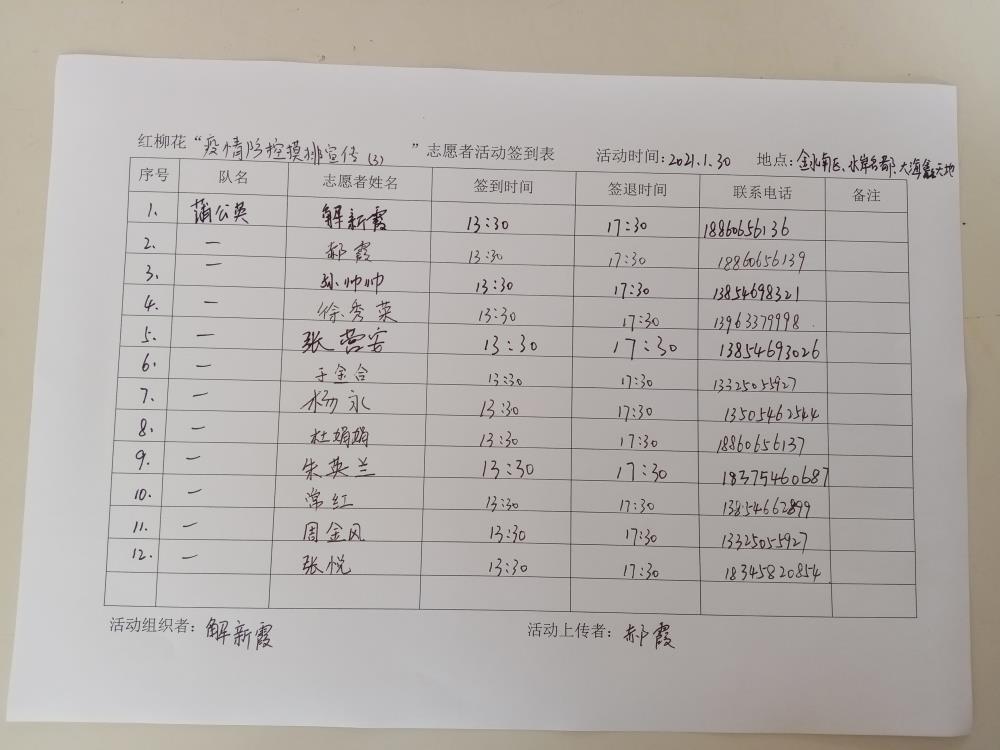 红柳花“疫情防控摸排宣传(3)”志愿者活动签到表 活动时间:2021.1.30 地点:金水南区、水岸名都、大海鑫天地
序号 队名 志愿者姓名 签到时间 签退时间 联系电话 备注
1. 蒲公英 解新霞 13:30 17:30 18860656136
2. 一 郝霞 13:30 17:30 18860656139
3. 一 孙帅帅 13:30 17:30 13854698321
4. 一 徐秀菜 13:30 17:30 13963379998
5. 一 张营安 13:30 17:30 13854693026
6. 一 于金合 13:30 17:30 13325055927
7. 一 杨永 13:30 17:30 13505462544
8. 一 杜娟娟 13:30 17:30 18860656137
9. 一 朱英兰 13:30 17:30 18375460687
10. 一 常红 13:30 17:30 13854662899
11. 一 周金风 13:30 17:30 13325055927
12. 一 张悦 13:30 17:30 18345820854
活动组织者:解新霞 活动上传者:郝霞